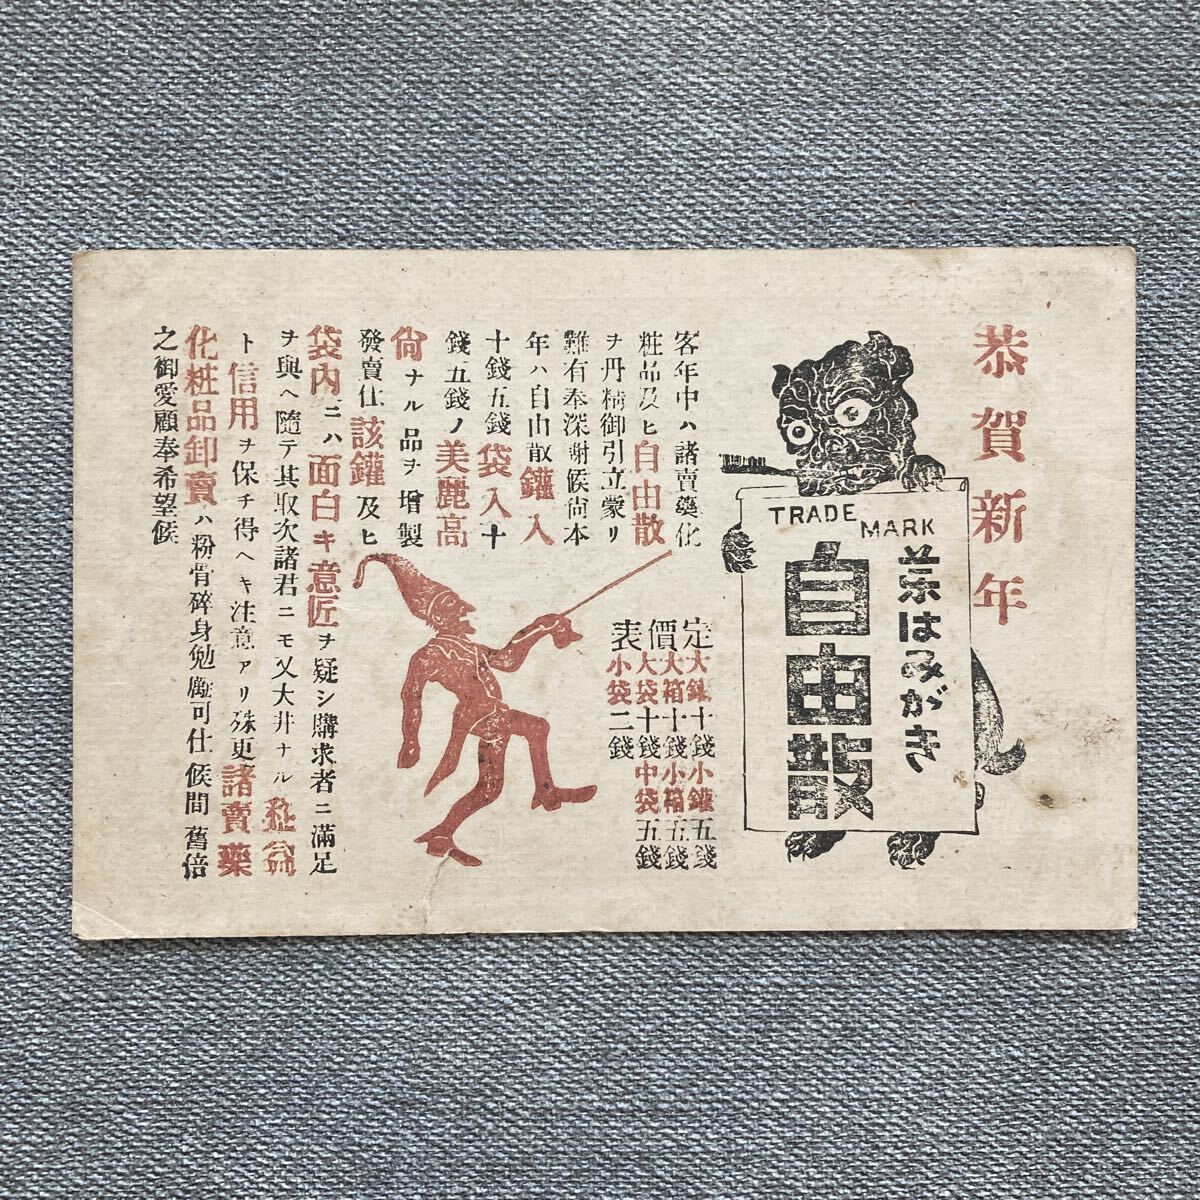 恭賀新年
TRADE MARK
はみがき
自由散
定價表
大鑵十錢小鑵五錢
大箱十錢小箱五錢
大袋十錢中袋五錢
小袋二錢
客年中ハ諸賣藥化
粧品及ヒ自由散
ヲ丹精御引立蒙リ
難有奉深謝候尙本
年ハ自由散鑵入
十錢五錢袋入十
錢五錢ノ美麗高
尙ナル品ヲ增製
發賣仕該鑵及ヒ
袋内ニハ面白キ意匠ヲ疑シ購求者ニ滿足
ヲ與ヘ隨テ其取次諸君ニモ又大井ナル
ト信用ヲ保チ得ヘキ注意アリ殊更諸賣藥
化粧品卸賣ハ粉骨碎身勉勵可仕候間舊倍
之御愛顧奉希望候